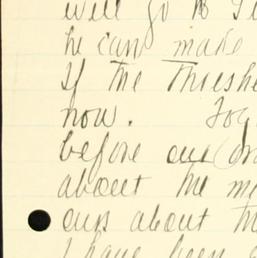 will go to
he can make
If the Threshe
now.
before our
about the m
cuss about th
I have been